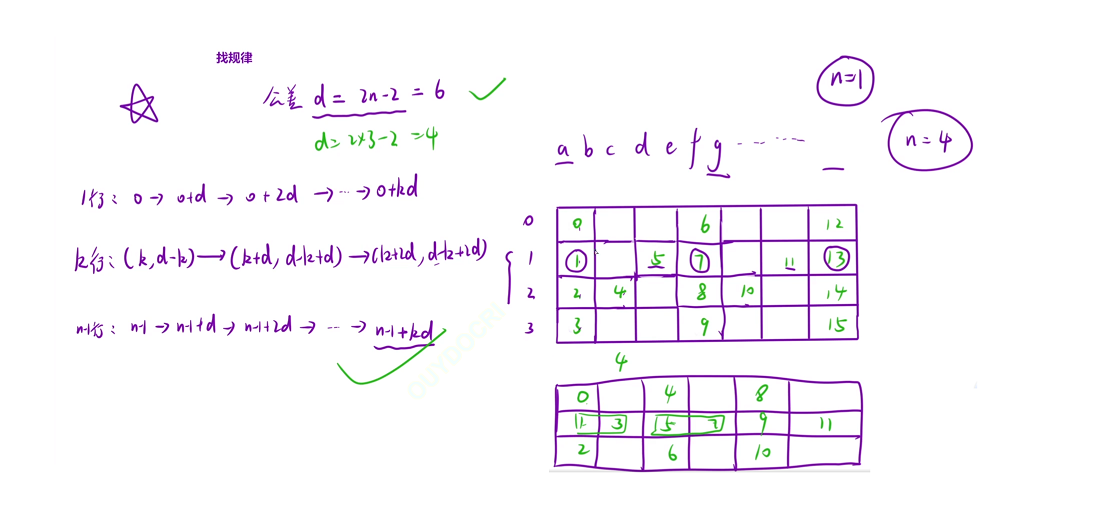 找规律
n=1
公差 d = 2n-2 = 6
d = 2×3-2 = 4
a b c d e f g ······
n=4
1行: 0 → 0+d → 0+2d → ··· → 0+kd
k行: (k, d-k) → (k+d, d-k+d) → (k+2d, d-k+2d)
n-1行: n-1 → n-1+d → n-1+2d → ··· → n-1+kd
0 0 6 12
1 1 5 7 11 13
2 2 4 8 10 14
3 3 9 15
4
0 4 8
1 3 5 7 9 11
2 6 10